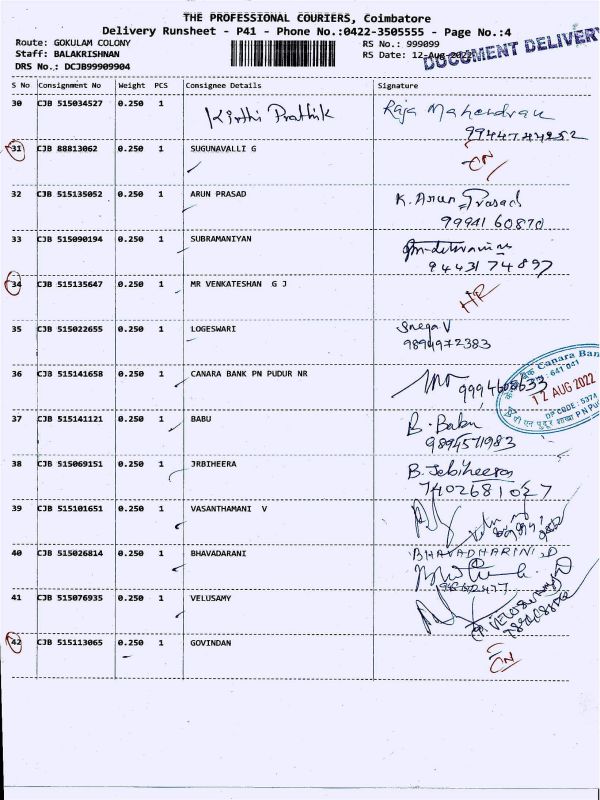 THE PROFESSIONAL COURIERS, Coimbatore
Delivery Runsheet - P41 - Phone No.:0422-3505555 - Page No.:4
Route: GOKULAM COLONY RS No.: 999099
Staff: BALAKRISHNAN RS Date: 12-Aug-2022
DOCUMENT DELIVERY
DRS No.: DCJB99909904
S No Consignment No Weight PCS Consignee Details Signature
30 CJB 515034527 0.250 1 Kirthi Prathik Raja Mahendran
31 CJB 88813062 0.250 1 SUGUNAVALLI G
32 CJB 515135052 0.250 1 ARUN PRASAD K. Arun Prasad
9994160870
33 CJB 515090194 0.250 1 SUBRAMANIYAN
9443174897
34 CJB 515135647 0.250 1 MR VENKATESHAN G J
35 CJB 515022655 0.250 1 LOGESWARI Snega V
9894972383
36 CJB 515141658 0.250 1 CANARA BANK PN PUDUR NR
Canara Bank
641 041
12 AUG 2022
DP CODE : 5374
37 CJB 515141121 0.250 1 BABU B. Babu
9894571983
38 CJB 515069151 0.250 1 JRBIHEERA B. Jebiheera
7402681027
39 CJB 515101651 0.250 1 VASANTHAMANI V
40 CJB 515026814 0.250 1 BHAVADARANI BHAVADHARINI.D
41 CJB 515076935 0.250 1 VELUSAMY
42 CJB 515113065 0.250 1 GOVINDAN